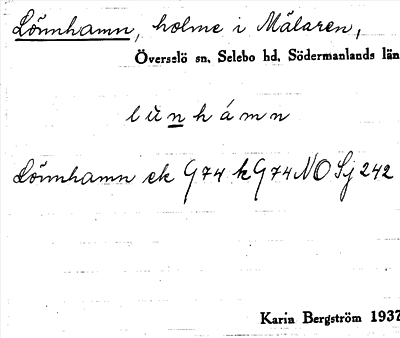 Lönnhamn, holme i Mälaren,
Överselö sn, Selebo hd, Södermanlands län
lŭnhámn
Lönnhamn ek G 74 k G 74 NO Sj 242
Karin Bergström 1937